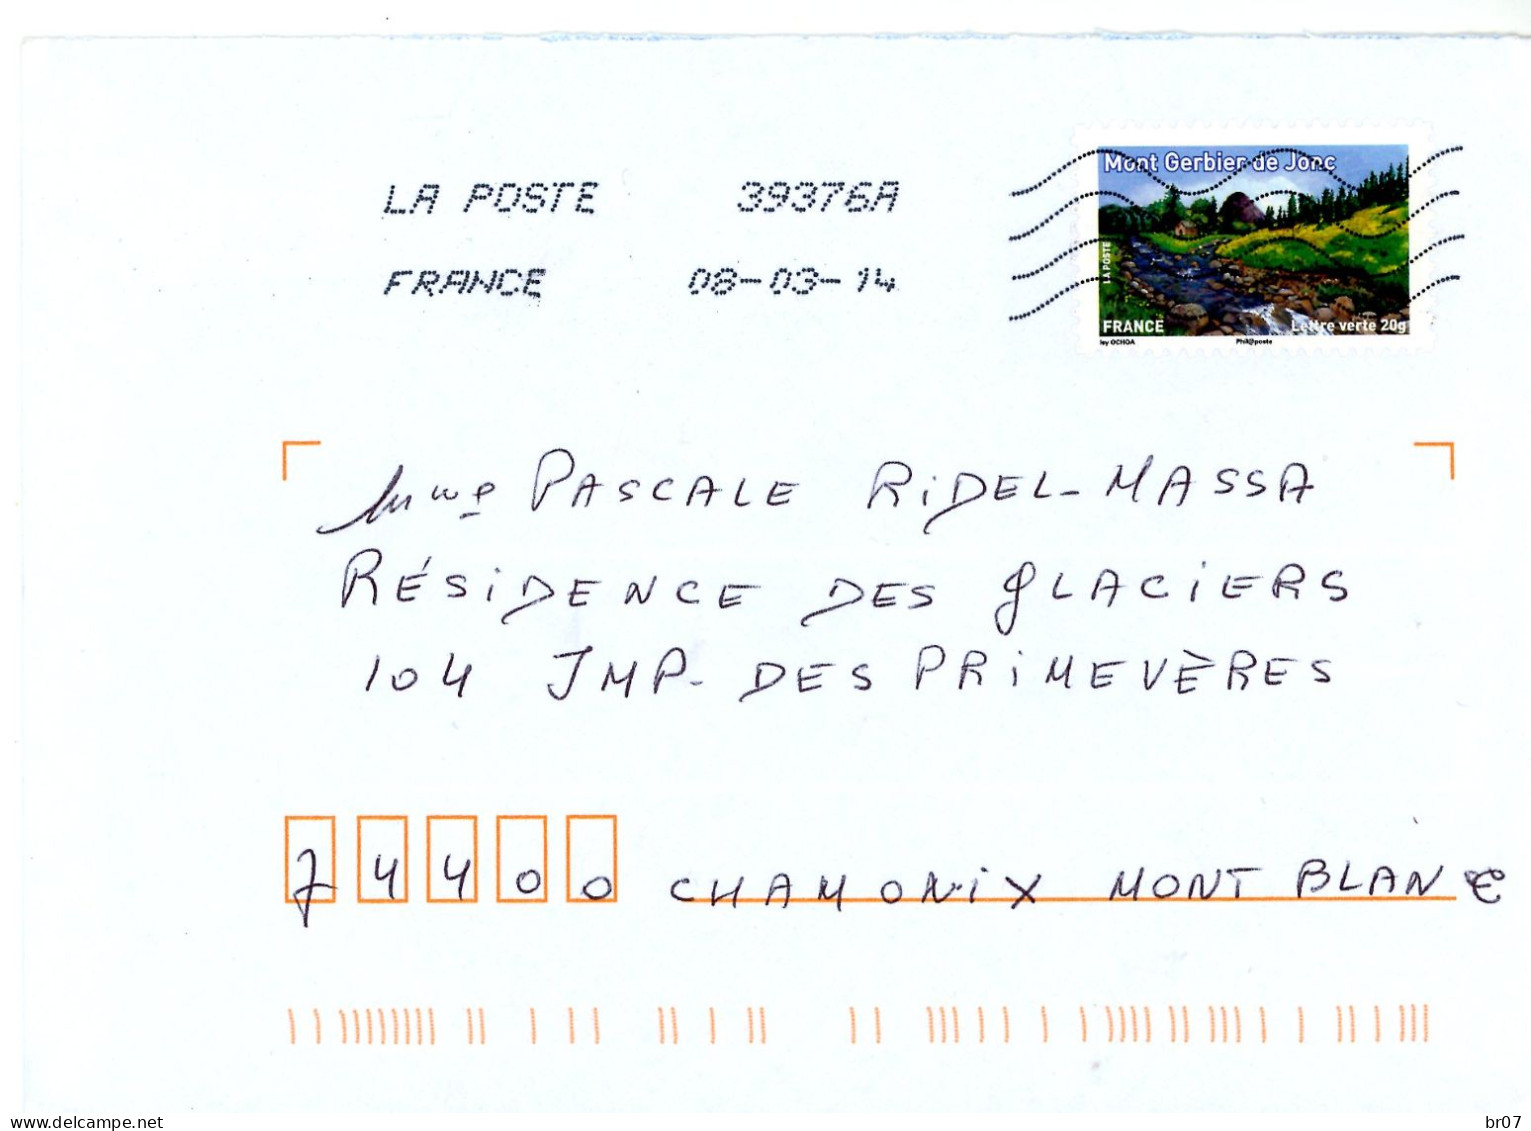 LA POSTE 39376A
FRANCE 08-03-14
Mont Gerbier de Jonc
LA POSTE
FRANCE Lettre verte 20g
Isy OCHOA Phil@poste
Mme PASCALE RiDEL-MASSA
RÉSiDENCE DES GLACiERS
104 IMP. DES PRiMEVÈRES
74400 CHAMONiX MONT BLANC
www.delcampe.net br07